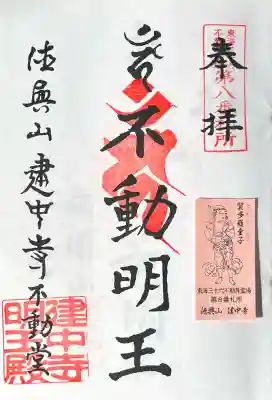 奉拝
東海
不
第八番
所
不動明王
徳興山建中寺不動堂
建中寺
明王殿
制多迦童子
東海三十六不動尊霊場
第八番札所
徳興山 建中寺